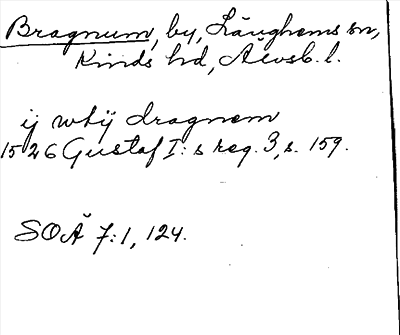 Bragnum, by, Länghems sn,
Kinds hd, Älvsb. l.
ij wtij dragnem
1526 Gustaf I:s reg. 3, s. 159.
SOÄ 7:1, 124.